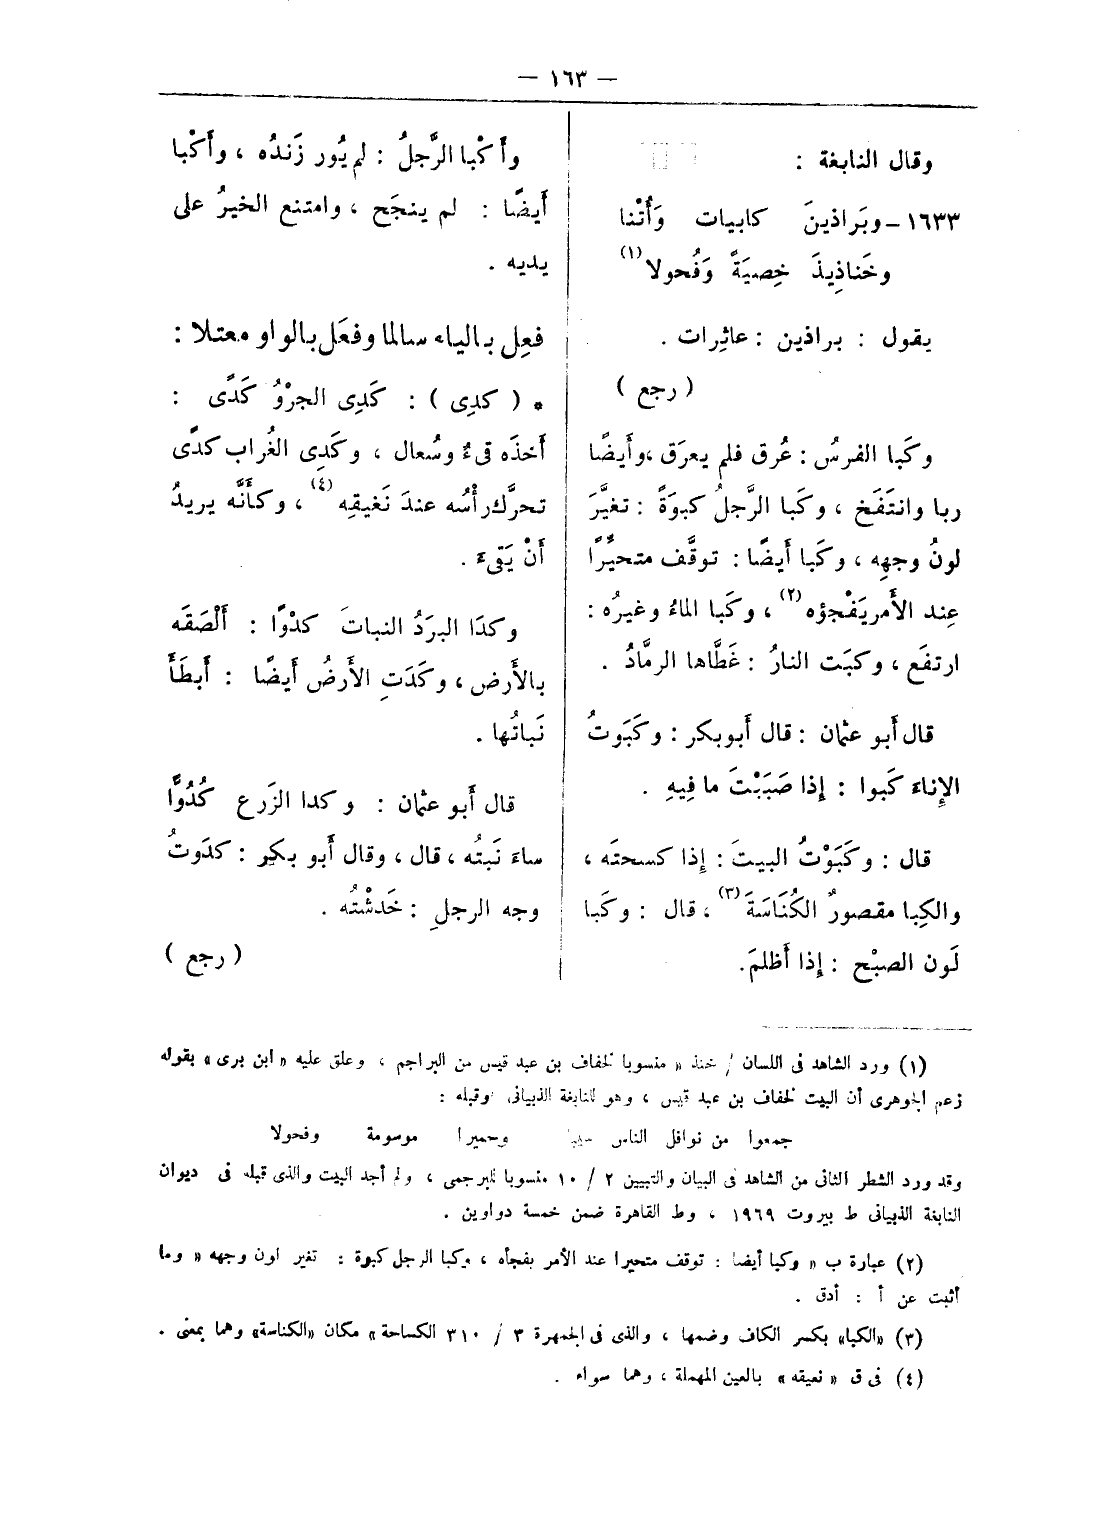 — ١٦٣ —
وقال النابغة :
١٦٣٣ـ وبَراذينَ كابيات وَأُتْنا
وخَناذِيذَ خِصيَةً وَفُحولا (١)
يقول : براذين : عاثِرات .
( رجع )
وكَبا الفرسُ : عُرق فلم يعرَق ، وأَيضًا
ربا وانتَفَخ ، وكَبا الرَّجلُ كبوَةً : تغيَّرَ
لونُ وجهِه ، وكَبا أَيضًا : توقَّف متحيِّرًا
عِند الأَمر يَفْجؤه (٢) ، وكَبا الماءُ وغيرُه :
ارتفَع ، وكبَت النارُ : غَطَّاها الرمَّادُ .
قال أَبو عثمان : قال أَبوبكر : وكَبَوتُ
الإِناءَ كَبوا : إِذا صَبَبْتَ ما فِيهِ .
قال : وكَبَوْتُ البيتَ : إِذا كسحتَه ،
والكِبا مقصورٌ الكُنَاسَةَ (٣) ، قال : وكَبا
لَون الصبْح : إِذا أَظلمَ .
وأَكْبا الرَّجلُ : لم يُور زَندُه ، وأَكْبا
أَيضًا : لم ينجَح ، وامتنع الخيرُ على
يديه .
فعِل بالياء سالما وفعَل بالواو معتلا :
* ( كدِى ) : كَدِى الجرْوُ كَدًى :
أَخذَه قىءٌ وسُعال ، وكَدِى الغُراب كدًى
تحرَّك رأْسُه عندَ نَغيقِه (٤) ، وكأَنَّه يريدُ
أَنْ يَقىءَ .
وكدَا البرَدُ النباتَ كدْوًا : أَلْصَقَه
بالأَرض ، وكَدَتِ الأَرضُ أَيضًا : أَبطَأَ
نَباتُها .
قال أَبو عثمان : وكدا الزَرع كُدُوًّا
ساءَ نَبتُه ، قال ، وقال أَبو بكر : كدَوتُ
وجه الرجلِ : خَدشْتُه .
( رجع )
(١) ورد الشاهد فى اللسان / خنذ « منسوبا لخفاف بن عبد قيس من البراجم ، وعلق عليه « ابن برى » بقوله
زعم الجوهرى أن البيت لخفاف بن عبد قيس ، وهو للنابغة الذبيانى وقبله :
جمعوا من نوافل الناس وحميرا موسومة وفحولا
وقد ورد الشطر الثانى من الشاهد فى البيان والتبيين ٢ / ١٠ منسوبا للبرجمى ، ولم أجد البيت والذى قبله فى ديوان
النابغة الذبيانى ط بيروت ١٩٦٩ ، وط القاهرة ضمن خمسة دواوين .
(٢) عبارة ب « وكبا أيضا : توقف متحيرا عند الأمر بفجأه ، وكبا الرجل كبوة : تغير لون وجهه « وما
أثبت عن أ : أدق .
(٣) «الكبا» بكسر الكاف وضمها ، والذى فى الجمهرة ٣ / ٣١٠ الكساحة» مكان «الكناسة» وهما بمعنى .
(٤) فى ق « نعيقه » بالعين المهملة ، وهما سواء .